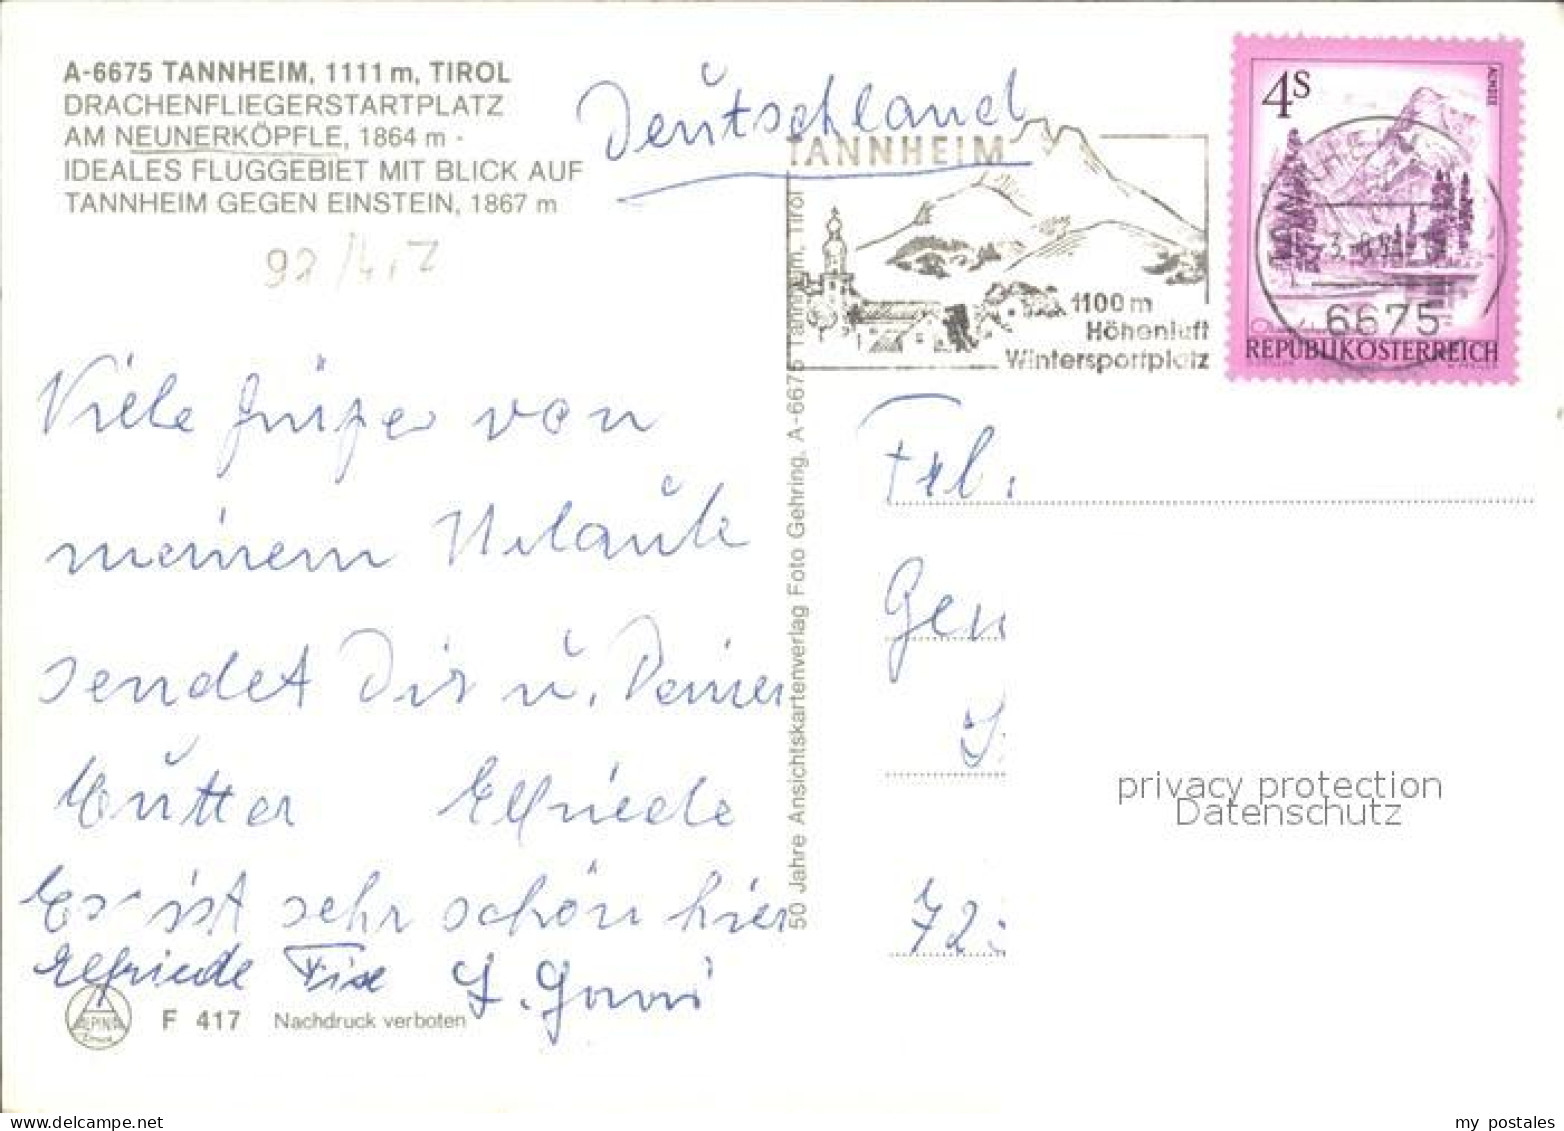 A-6675 TANNHEIM, 1111 m, TIROL
DRACHENFLIEGERSTARTPLATZ
AM NEUNERKÖPFLE, 1864 m -
IDEALES FLUGGEBIET MIT BLICK AUF
TANNHEIM GEGEN EINSTEIN, 1867 m
Deutschland
TANNHEIM
1100 m
Höhenluft
Wintersportplatz
4S
ACHSEE
6675
REPUBLIK ÖSTERREICH
Viele Grüße von
meinem Urlaub
sendet Dir u. Deiner
Mutter Elfriede
Es ist sehr schön hier
Elfriede
F 417 Nachdruck verboten
ALPINA
50 Jahre Ansichtskartenverlag Foto Gehring, A-6675 Tannheim, Tirol
Frl.
Gen
72
privacy protection
Datenschutz
my postales